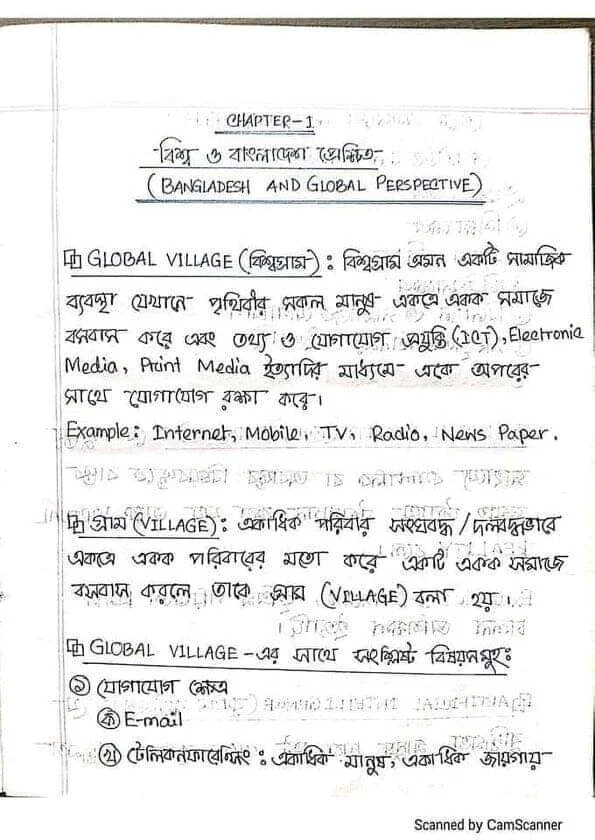 CHAPTER-1
-বিশ্ব ও বাংলাদেশ প্রেক্ষিত-
(BANGLADESH AND GLOBAL PERSPECTIVE)
GLOBAL VILLAGE (বিশ্বগ্রাম) : বিশ্বগ্রাম এমন একটি সামাজিক
ব্যবস্থা যেখানে পৃথিবীর সকল মানুষ একত্রে একক সমাজে
বসবাস করে এবং তথ্য ও যোগাযোগ প্রযুক্তি (ICT), Electronic
Media, Print Media ইত্যাদির মাধ্যমে একে অপরের
সাথে যোগাযোগ রক্ষা করে।
Example: Internet, Mobile, TV, Radio, News Paper.
গ্রাম (VILLAGE) : একাধিক পরিবার সংঘবদ্ধ / দলবদ্ধভাবে
একত্রে একক পরিবারের মতো করে একটি একক সমাজে
বসবাস করলে তাকে গ্রাম (VILLAGE) বলা হয়।
GLOBAL VILLAGE -এর সাথে সংশ্লিষ্ট বিষয়সমূহঃ
১ যোগাযোগ ক্ষেত্র
ক E-mail
খ টেলিকনফারেন্সিং : একাধিক মানুষ, একাধিক জায়গায়
Scanned by CamScanner